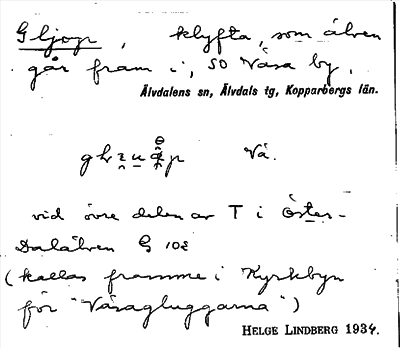 Gljop, klyfta, som älven
går fram i, SO Våsa by,
Älvdalens sn, Älvdals tg, Kopparbergs län.
Vå.
vid övre delen av T i Öster-
Dalälven G 102
(kallas framme i Kyrkbyn
för "Våsagluggarna")
HELGE LINDBERG 1934.